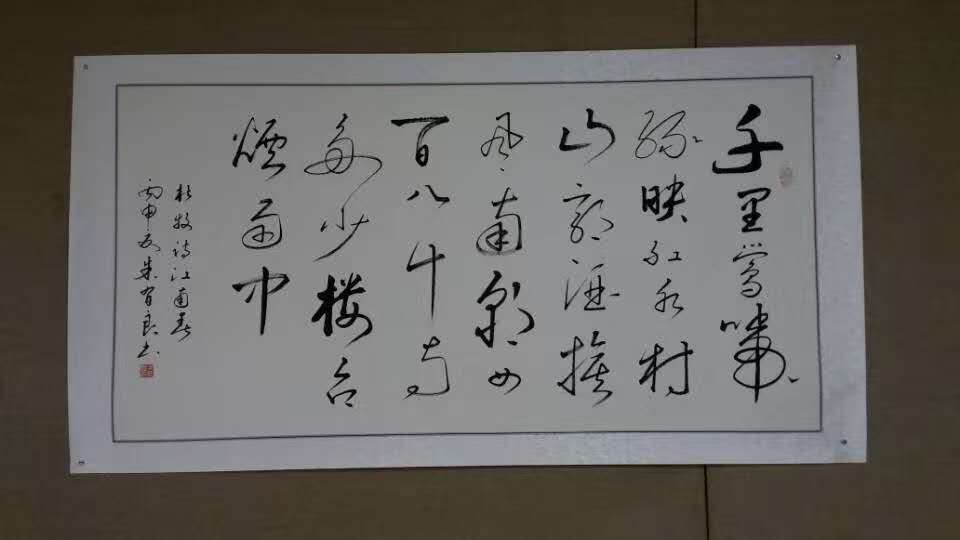 千里莺啼
绿映红水村
山郭酒旗
风南朝四
百八十寺
多少楼台
煙雨中
杜牧诗江南春
丙申夏朱良书